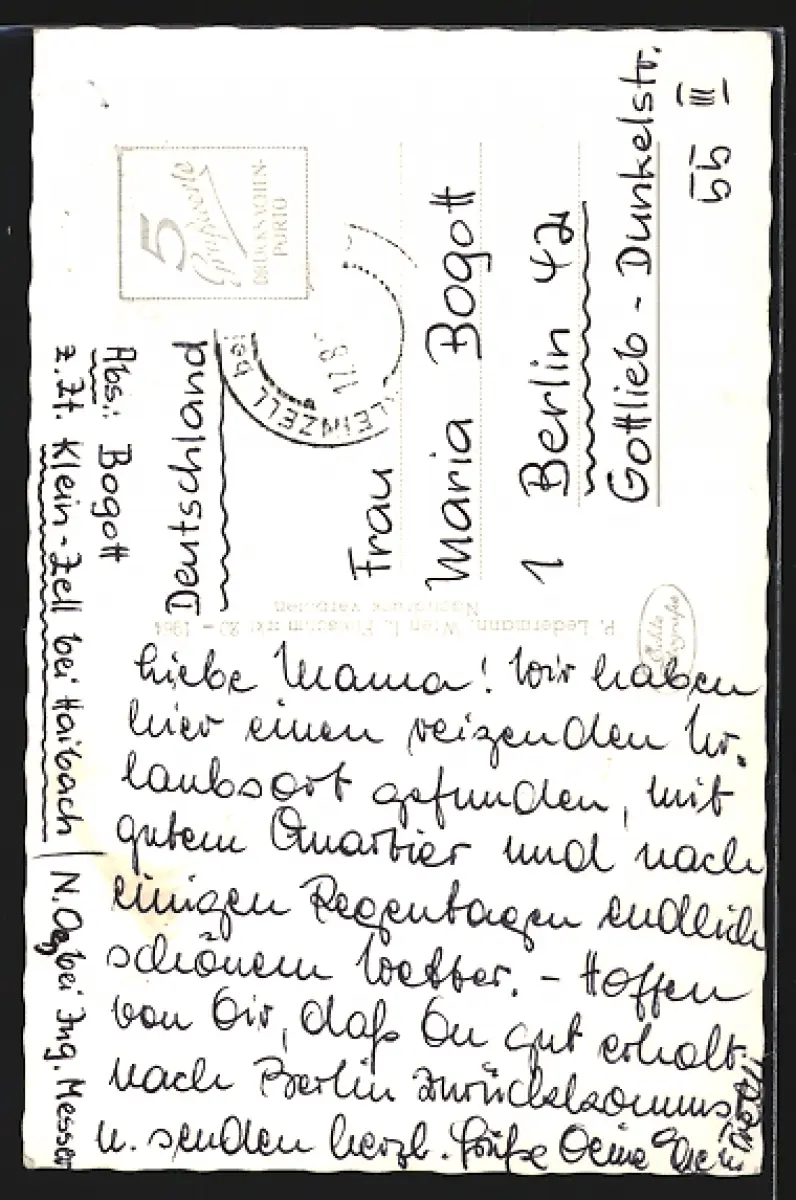 Liebe Mama! Wir haben
hier einen reizenden Ur-
laubsort gefunden, mit
gutem Quartier und nach
einigen Regentagen endlich
schönem Wetter. – Hoffen
von Dir, daß Du gut erholt
nach Berlin zurückkommst
u. senden herzl. Grüße Deine
Abs.: Bogott
z. Zt. Klein-Zell bei Haibach / N.Oe. bei Ing. Messer
Deutschland
Frau
Maria Bogott
1 Berlin 42
Gottlieb - Dunkelstr.
55 III
5
DRUCKSACHEN-
PORTO
KLEINZELL bei
17.8.
P. Ledermann, Wien I, Fleischmarkt 20 – 1964
Nachdruck verboten
Echte